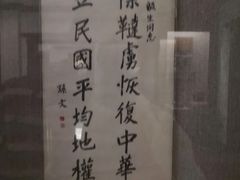 生同志
除韃虜恢復中華
立民國平均地權
孫文